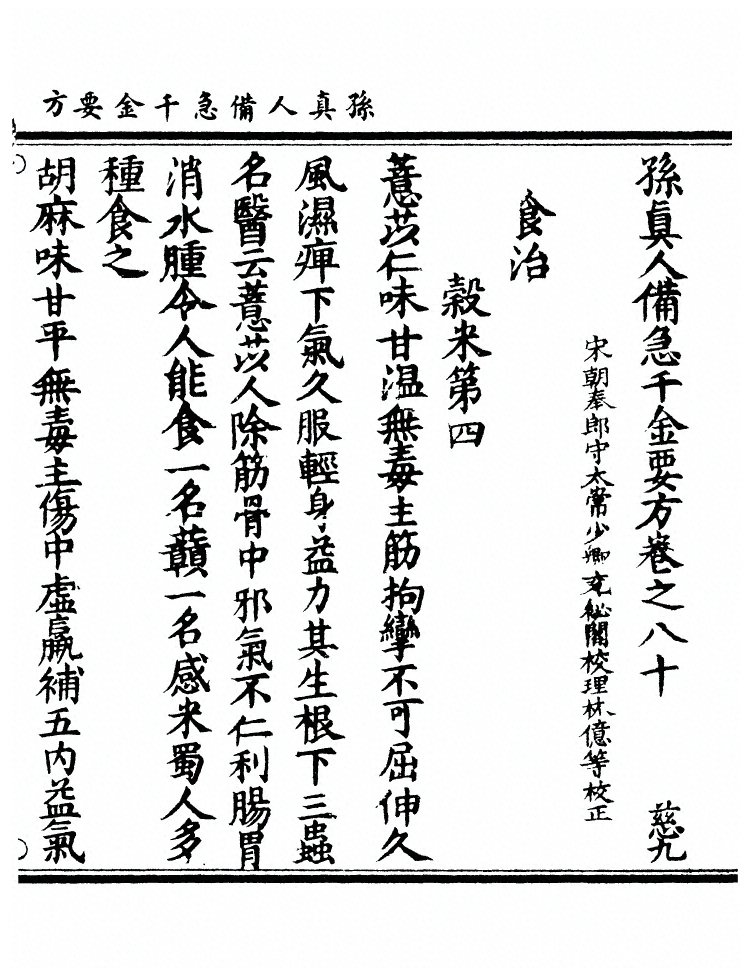 孫真人備急千金要方
孫真人備急千金要方卷之八十 慈九
宋朝奉郎守太常少卿充秘閣校理林億等校正
食治
穀米第四
薏苡仁味甘溫無毒主筋拘攣不可屈伸久
風濕痹下氣久服輕身益力其生根下三蟲
名醫云薏苡人除筋骨中邪氣不仁利腸胃
消水腫令人能食一名䕡一名感米蜀人多
種食之
胡麻味甘平無毒主傷中虛羸補五內益氣